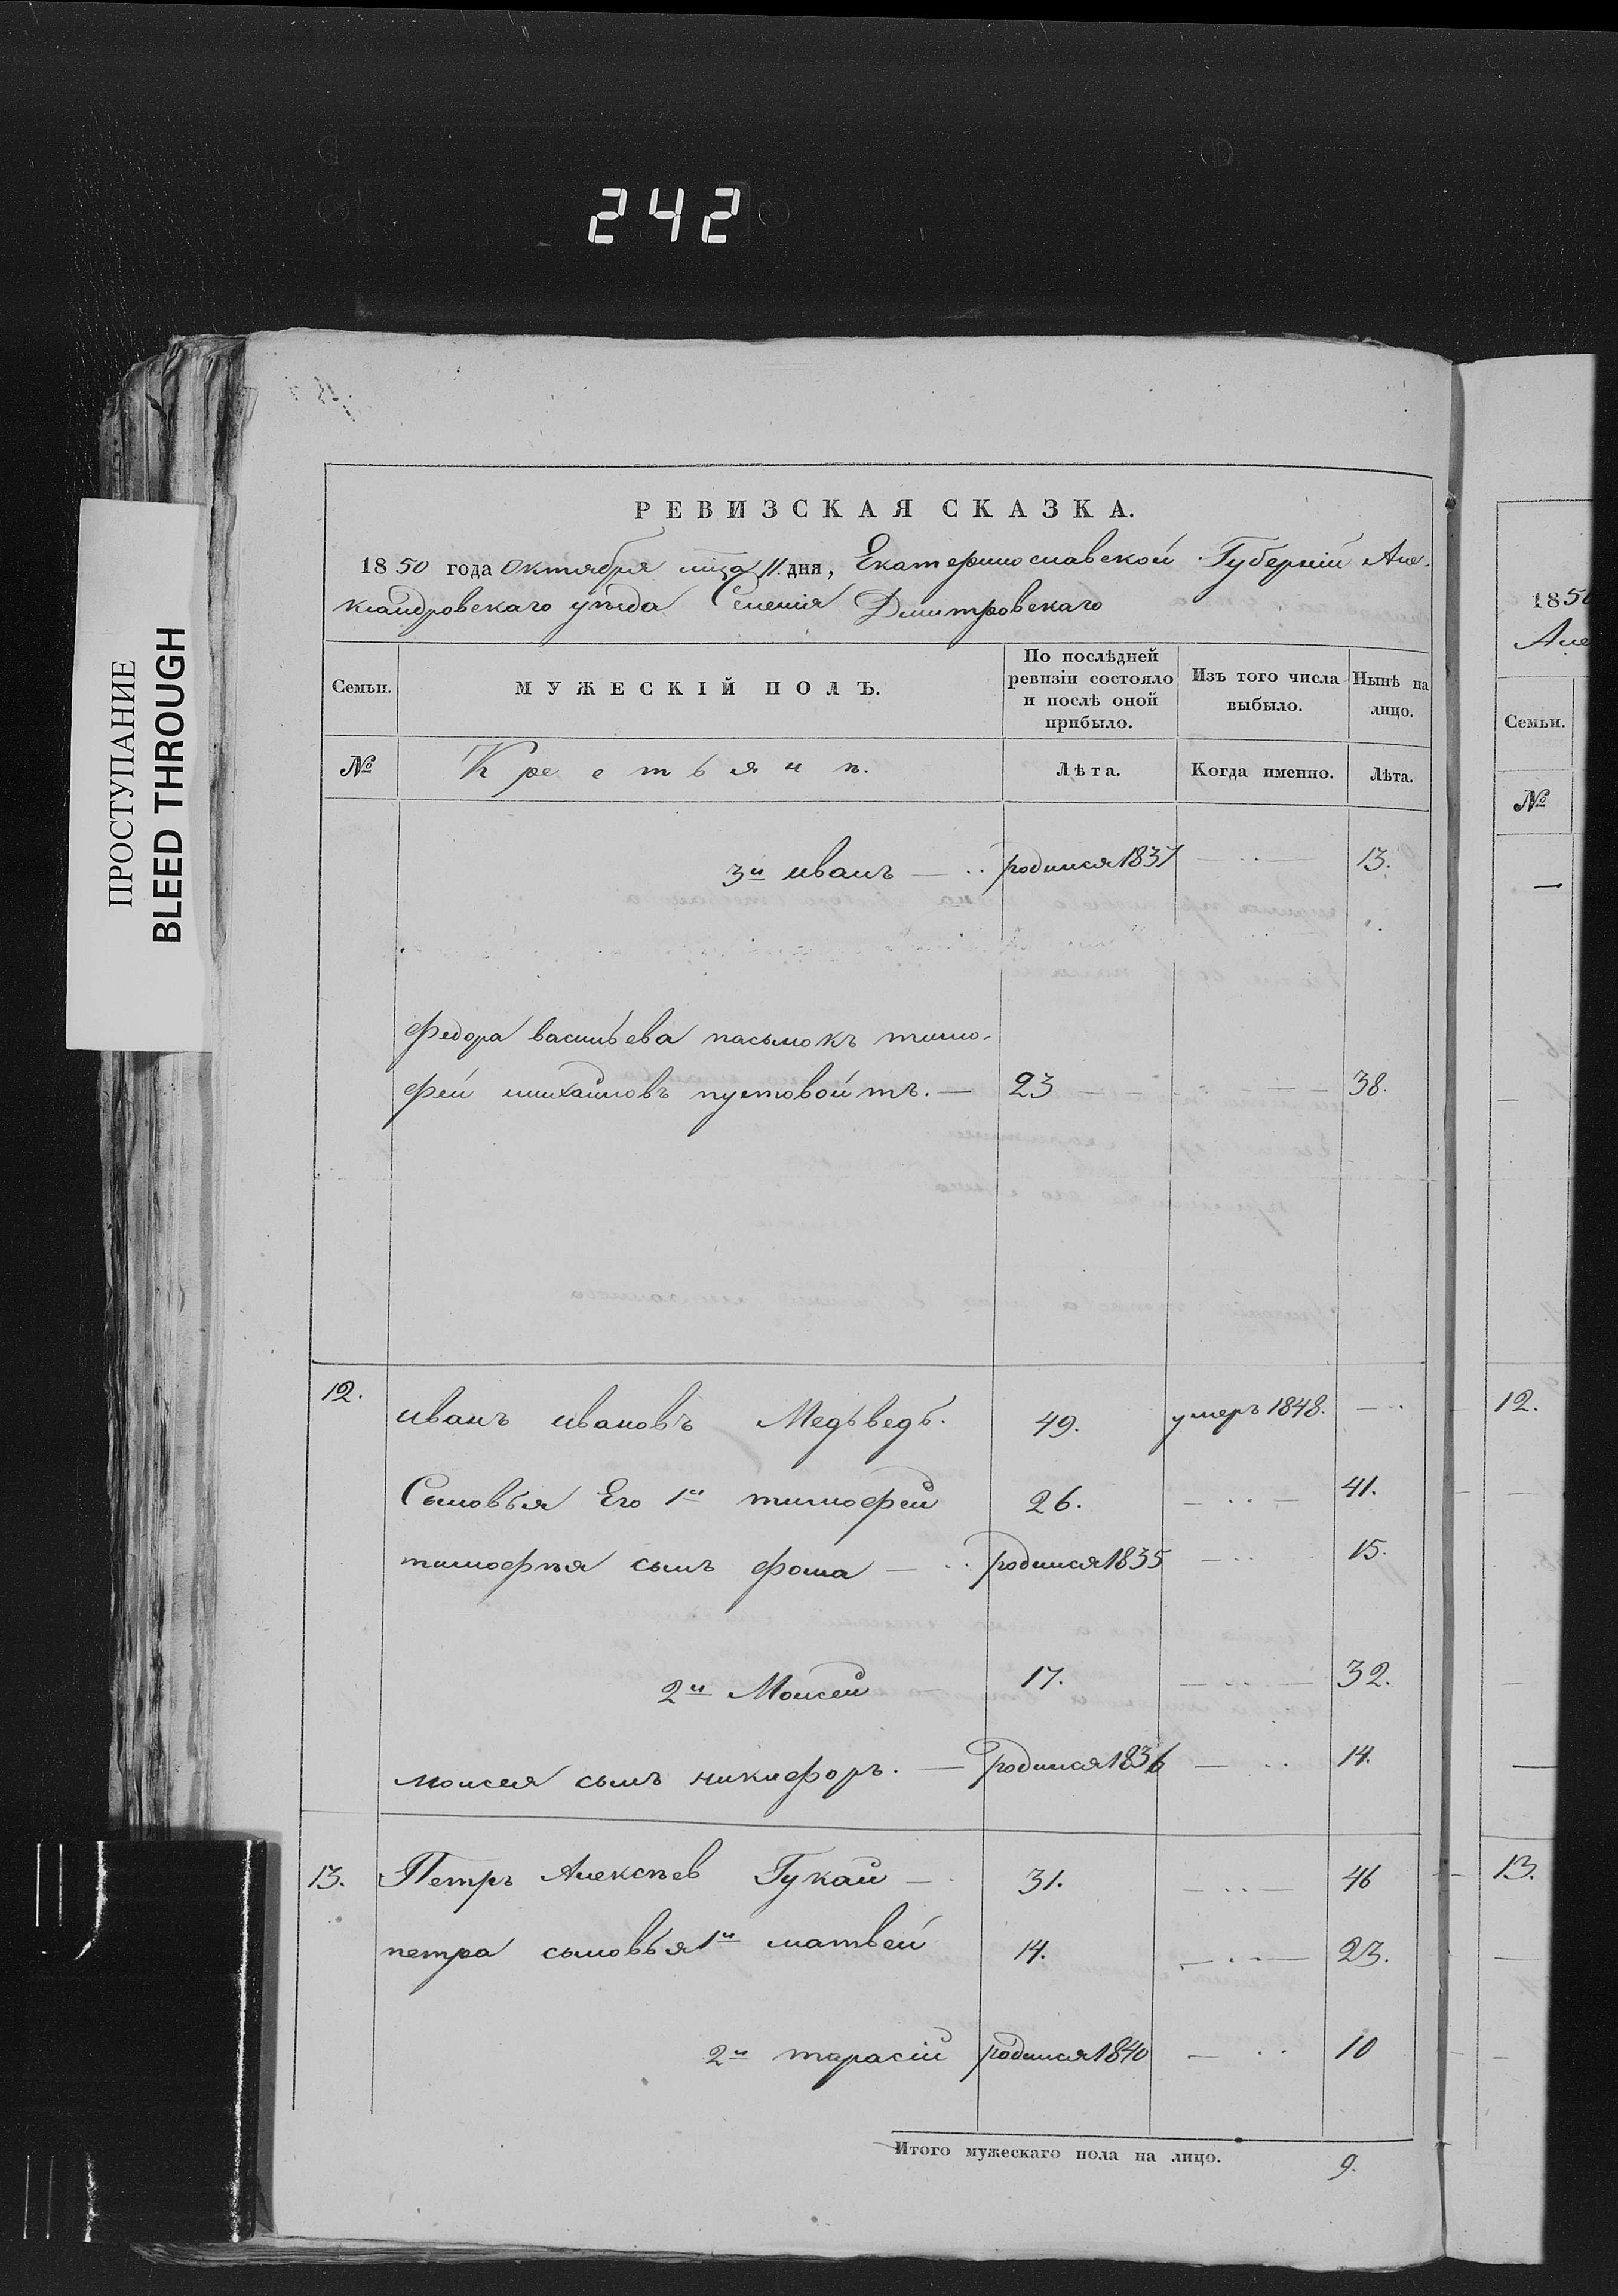 242
ПРОСТУПАНИЕ
BLEED THROUGH
РЕВИЗСКАЯ СКАЗКА.
1850 года Октября мца 11. дня, Екатеринославской Губерніи Але-
ксандровскаго уѣзда Селенія Дмитровскаго
Семьи. МУЖЕСКІЙ ПОЛЪ. По послѣдней ревизіи состояло и послѣ оной прибыло. Изъ того числа выбыло. Нынѣ на лицо.
№ Крестьянъ. Лѣта. Когда именно. Лѣта.
3й иванъ — .. родился 1837 — .. — 13.
федора васильева пасынокъ тимо-
фей михайловъ пустовойтъ. — 23 — — 38.
12. иванъ ивановъ Медьведь. 49. умеръ 1848. — ..
Сыновья Его 1й тимофей 26. — .. — 41.
тимофѣя сынъ фома — .. родился 1835 — .. 15.
2й Моисей 17. — .. — 32.
моисея сынъ никифоръ. — родился 1836 — .. 14.
13. Петръ Алексѣев Гукай — 31. — .. — 46
петра сыновья 1й матвей 14. — .. — 23.
2й тарасій родился 1840 — .. 10
Итого мужескаго пола на лицо. 9.
1850
Але
Семьи.
№
12.
13.